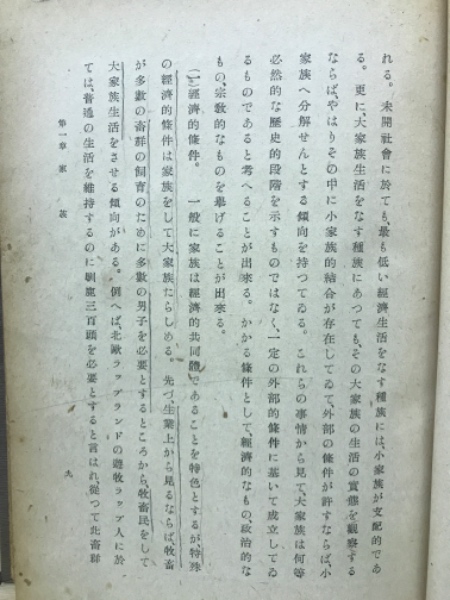 れる。未開社會に於ても、最も低い經濟生活をなす種族には、小家族が支配的であ
る。更に、大家族生活をなす種族にあつても、その大家族の生活の實態を觀察する
ならば、やはりその中に小家族的結合が存在してゐて、外部の條件が許すならば、小
家族へ分解せんとする傾向を持つてゐる。これらの事情から見て、大家族は何等
必然的な歷史的段階を示すものではなく、一定の外部的條件に基いて成立してゐ
るものであると考へることが出來る。かかる條件として、經濟的なもの、政治的な
もの、宗敎的なものを擧げることが出來る。
(一)經濟的條件。一般に家族は經濟的共同體であることを特色とするが、特殊
の經濟的條件は家族をして大家族たらしめる。先づ、生業上から見るならば、牧畜
が多數の畜群の飼育のために多數の男子を必要とするところから、牧畜民をして
大家族生活をさせる傾向がある。例へば、北歐ラップランドの遊牧ラップ人に於
ては、普通の生活を維持するのに馴鹿三百頭を必要とすると言はれ、從つて此畜群
第一章 家族
九